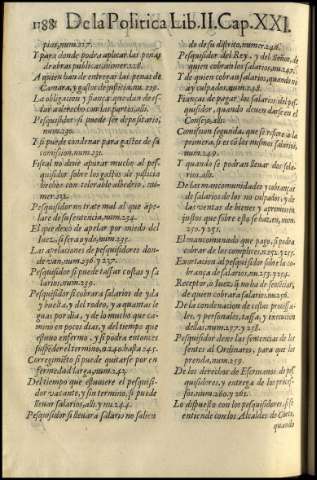 1788 De la Politica Lib. II. Cap. XXI.
plar, num. 227.
Y para donde podra aplicar las penas
de obras publicas, numer. 228.
A quien han de entregar las penas de
Camara, y gastos de justicia. nu. 229.
La obligacion y fiança que dan de es-
tar a derecho con los particulares.
Pesquisidor si puede ser depositario,
num. 230.
Y si puede condenar para gastos de su
comission, num. 231.
Fiscal no deue apurar mucho al pes-
quisidor sobre los gastos de justicia
hechos con tolerable aluedrio, nu-
mer. 232.
Pesquisidor no trate mal al que ape-
lare de su sentencia, num. 234.
El que dexò de apelar por miedo del
Iuez, si sera oydo, num. 235.
Las apelaciones de pesquisidores don-
de van, num. 236. y 237.
Pesquisidor si puede tassar costas y sa-
larios, num. 239.
Pesquisidor si cobrará salarios de yda
y buelta, y del rodeo, y a quantas le-
guas por dia, y de lo mucho que ca-
minò en pocos dias, y del tiempo que
estuuo enfermo, y si podra entonces
suspender el termino, n. 240. hasta 245.
Corregimiēto si puede quitarse por en-
fermedad larga, num. 242.
Del tiempo que estuuiere el pesquisi-
dor vacante, y sin termino, si puede
lleuar salarios, alli. y nu. 244.
Pesquisidor si lleuará salario no salien
do de su distrito, numer. 246.
Pesquisidor del Rey, y del Señor, de
quien cobran los salarios, nu. 247.
Y de quien cobran salarios, quando no
ay culpados, num. 248.
Fianças de pagar los salarios del pes-
quisidor, quando deuen darse en el
Consejo, alli.
Comission segunda, que se refiere à la
primera, si es cō los mismos salarios,
num. 249.
Y quando se podran lleuar dos sala-
rios, alli.
De las mancomunidades y cobranças
de salarios de los no culpados, y de
las ventas de bienes, y apremios
injustos que sobre esto se hazen, num.
250. y 251.
El mancomunado que pagò, si podra
cobrar de los complices. n. 252. y 255.
Exortacion al pesquisidor sobre la co-
brança de salarios, nu. 253. y 254.
Receptor, ò Iuez, si no ha de sentēciar,
de quien cobrara salarios, nu. 256.
De la condenacion de costas processa-
les, y personales, tassa, y execucion
dellas, num. 257. y 258.
Pesquisidor dexe las sentencias de los
ausentes al Ordinario, para que las
prenda, num. 259.
De los derechos de Escriuanos de pes-
quisidores, y entrega de los proces-
sos, num. 260. y 261.
Lo dispuesto con los pesquisidores, si se
entiende con los Alcaldes de Corte,
quando